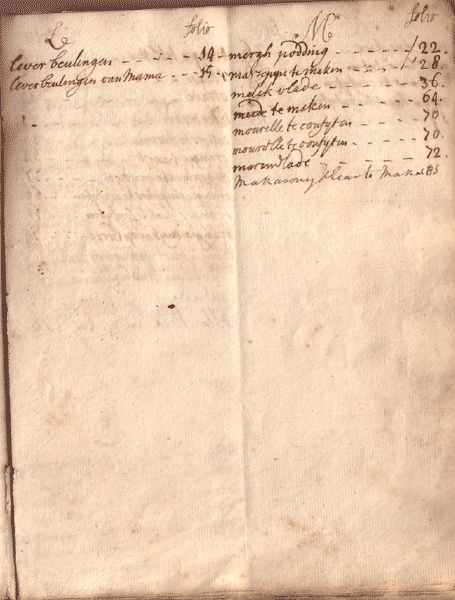 L folio
lever beulingen - - - - - - 14
lever beulingen van Mama - - - 15
M folio
mergh podding - - - - - / 22.
marsepyn te maken - - - - / 28.
melck vlade - - - - 36.
mede te maken - - - - 64.
mourelle te confyten - - - 70.
mourelle te confyten - - - - 70.
marmelade - - - - - 72.
Makarony klear te Maken 85